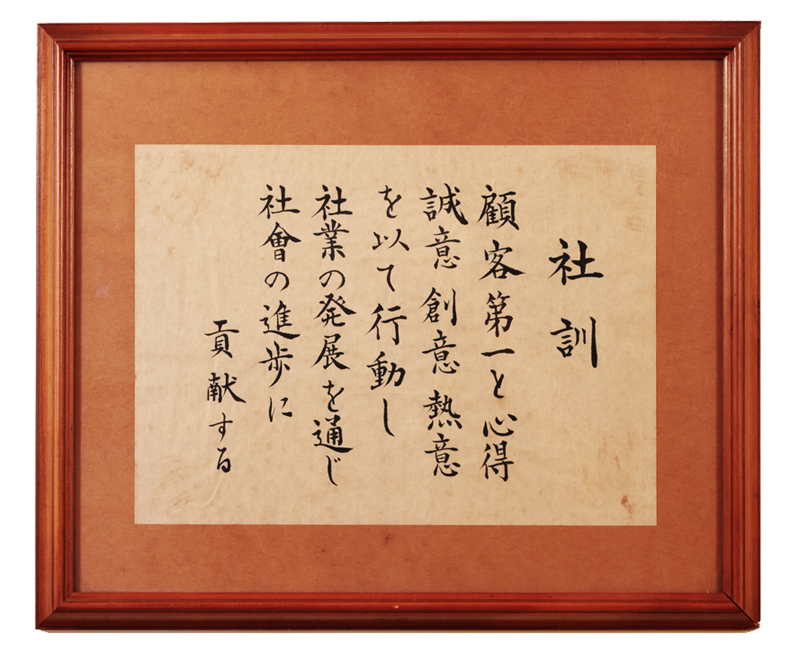 社訓
顧客第一と心得
誠意創意熱意
を以て行動し
社業の発展を通じ
社會の進歩に
貢献する